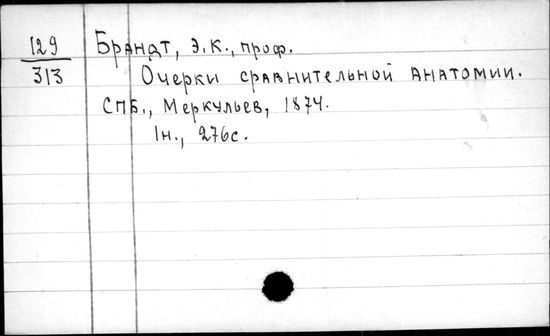 129
313
Брандт, Э.К., проф.
Очерки сравнительной анатомии.
СПБ., Меркульев, 1874.
1н., 276с.